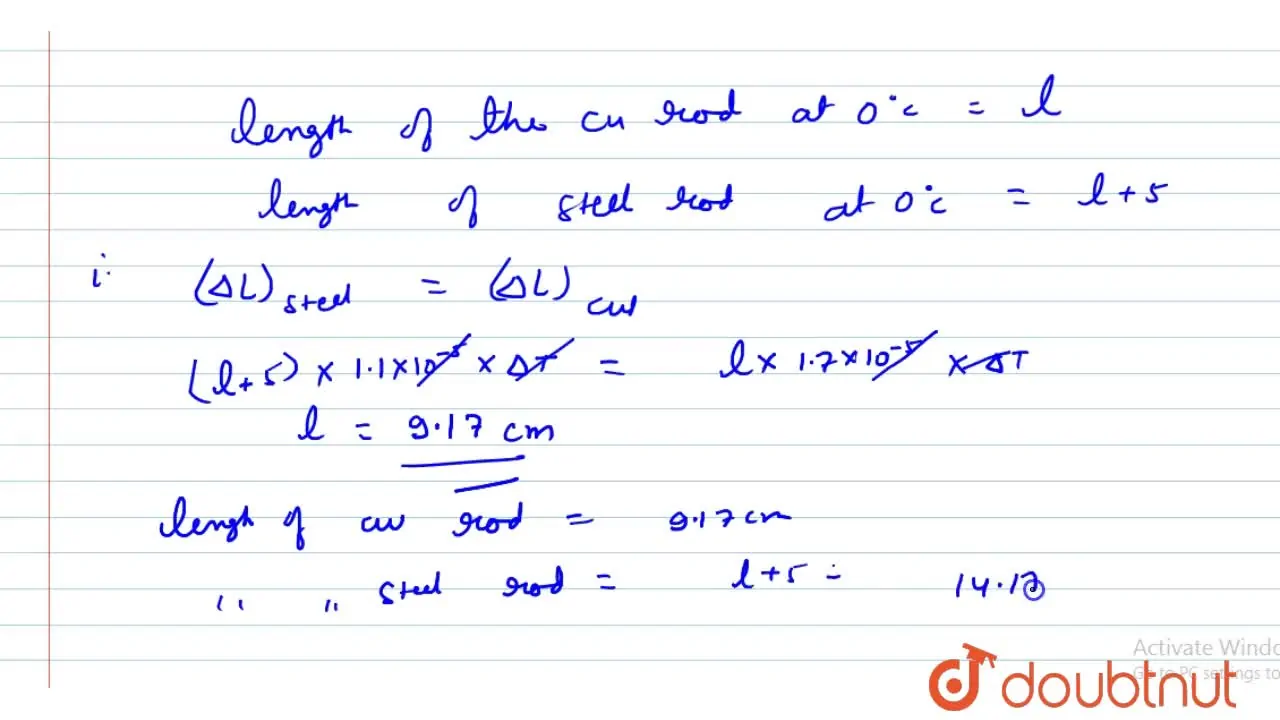 length of the cu rod at 0°c = l
length of steel rod at 0°c = l + 5
i. (ΔL)steel = (ΔL)cu
(l + 5) × 1.1 × 10⁻⁵ × ΔT = l × 1.7 × 10⁻⁵ × ΔT
l = 9.17 cm
lengh of cu rod = 9.17 cm
" " steel rod = l + 5 = 14.17
Activate Windo
Go to PC settings to
doubtnut